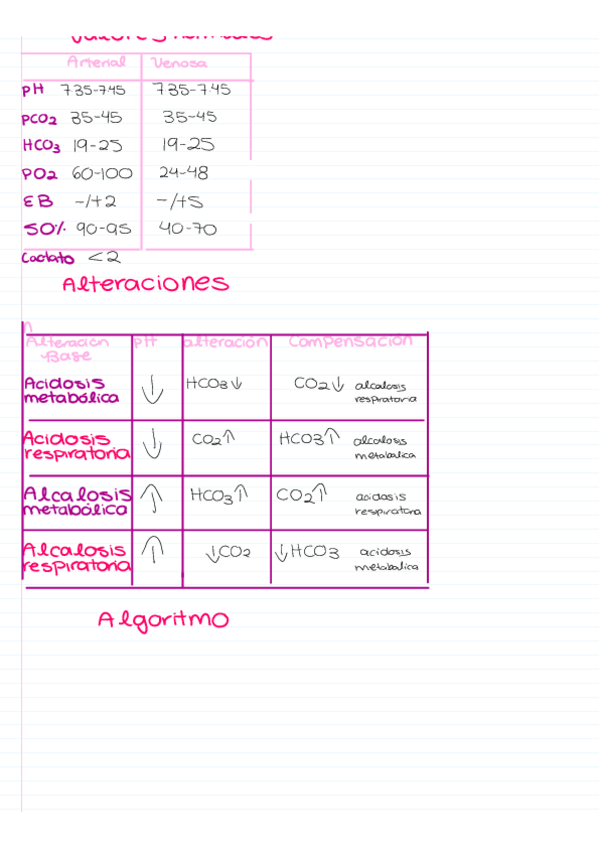 Valores normales
Arterial Venosa
pH 7.35-7.45 7.35-7.45
PCO2 35-45 35-45
HCO3 19-25 19-25
PO2 60-100 24-48
EB -/+2 -/+5
SO% 90-95 40-70
Lactato <2
Alteraciones
Alteración Base pH alteración Compensación
Acidosis metabólica ↓ HCO3↓ CO2↓ alcalosis respiratoria
Acidosis respiratoria ↓ CO2↑ HCO3↑ alcalosis metabolica
Alcalosis metabólica ↑ HCO3↑ CO2↑ acidosis respiratoria
Alcalosis respiratoria ↑ ↓CO2 ↓HCO3 acidosis metabolica
Algoritmo